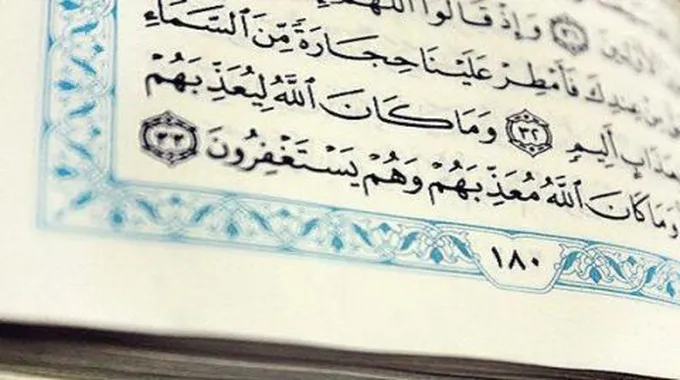 الْأَوَّلِينَ ٣١ وَإِذْ قَالُوا اللَّهُمَّ
مِنْ عِندِكَ فَأَمْطِرْ عَلَيْنَا حِجَارَةً مِّنَ السَّمَاءِ
بِعَذَابٍ أَلِيمٍ ٣٢ وَمَا كَانَ اللَّهُ لِيُعَذِّبَهُمْ
وَمَا كَانَ اللَّهُ مُعَذِّبَهُمْ وَهُمْ يَسْتَغْفِرُونَ ٣٣
١٨٠